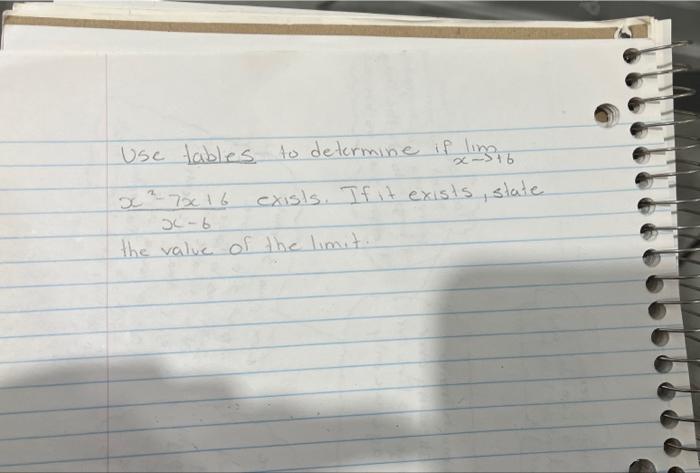 Use tables to determine if lim
x->16
x²-7x16 exists. If it exists, state
x-6
the value of the limit.